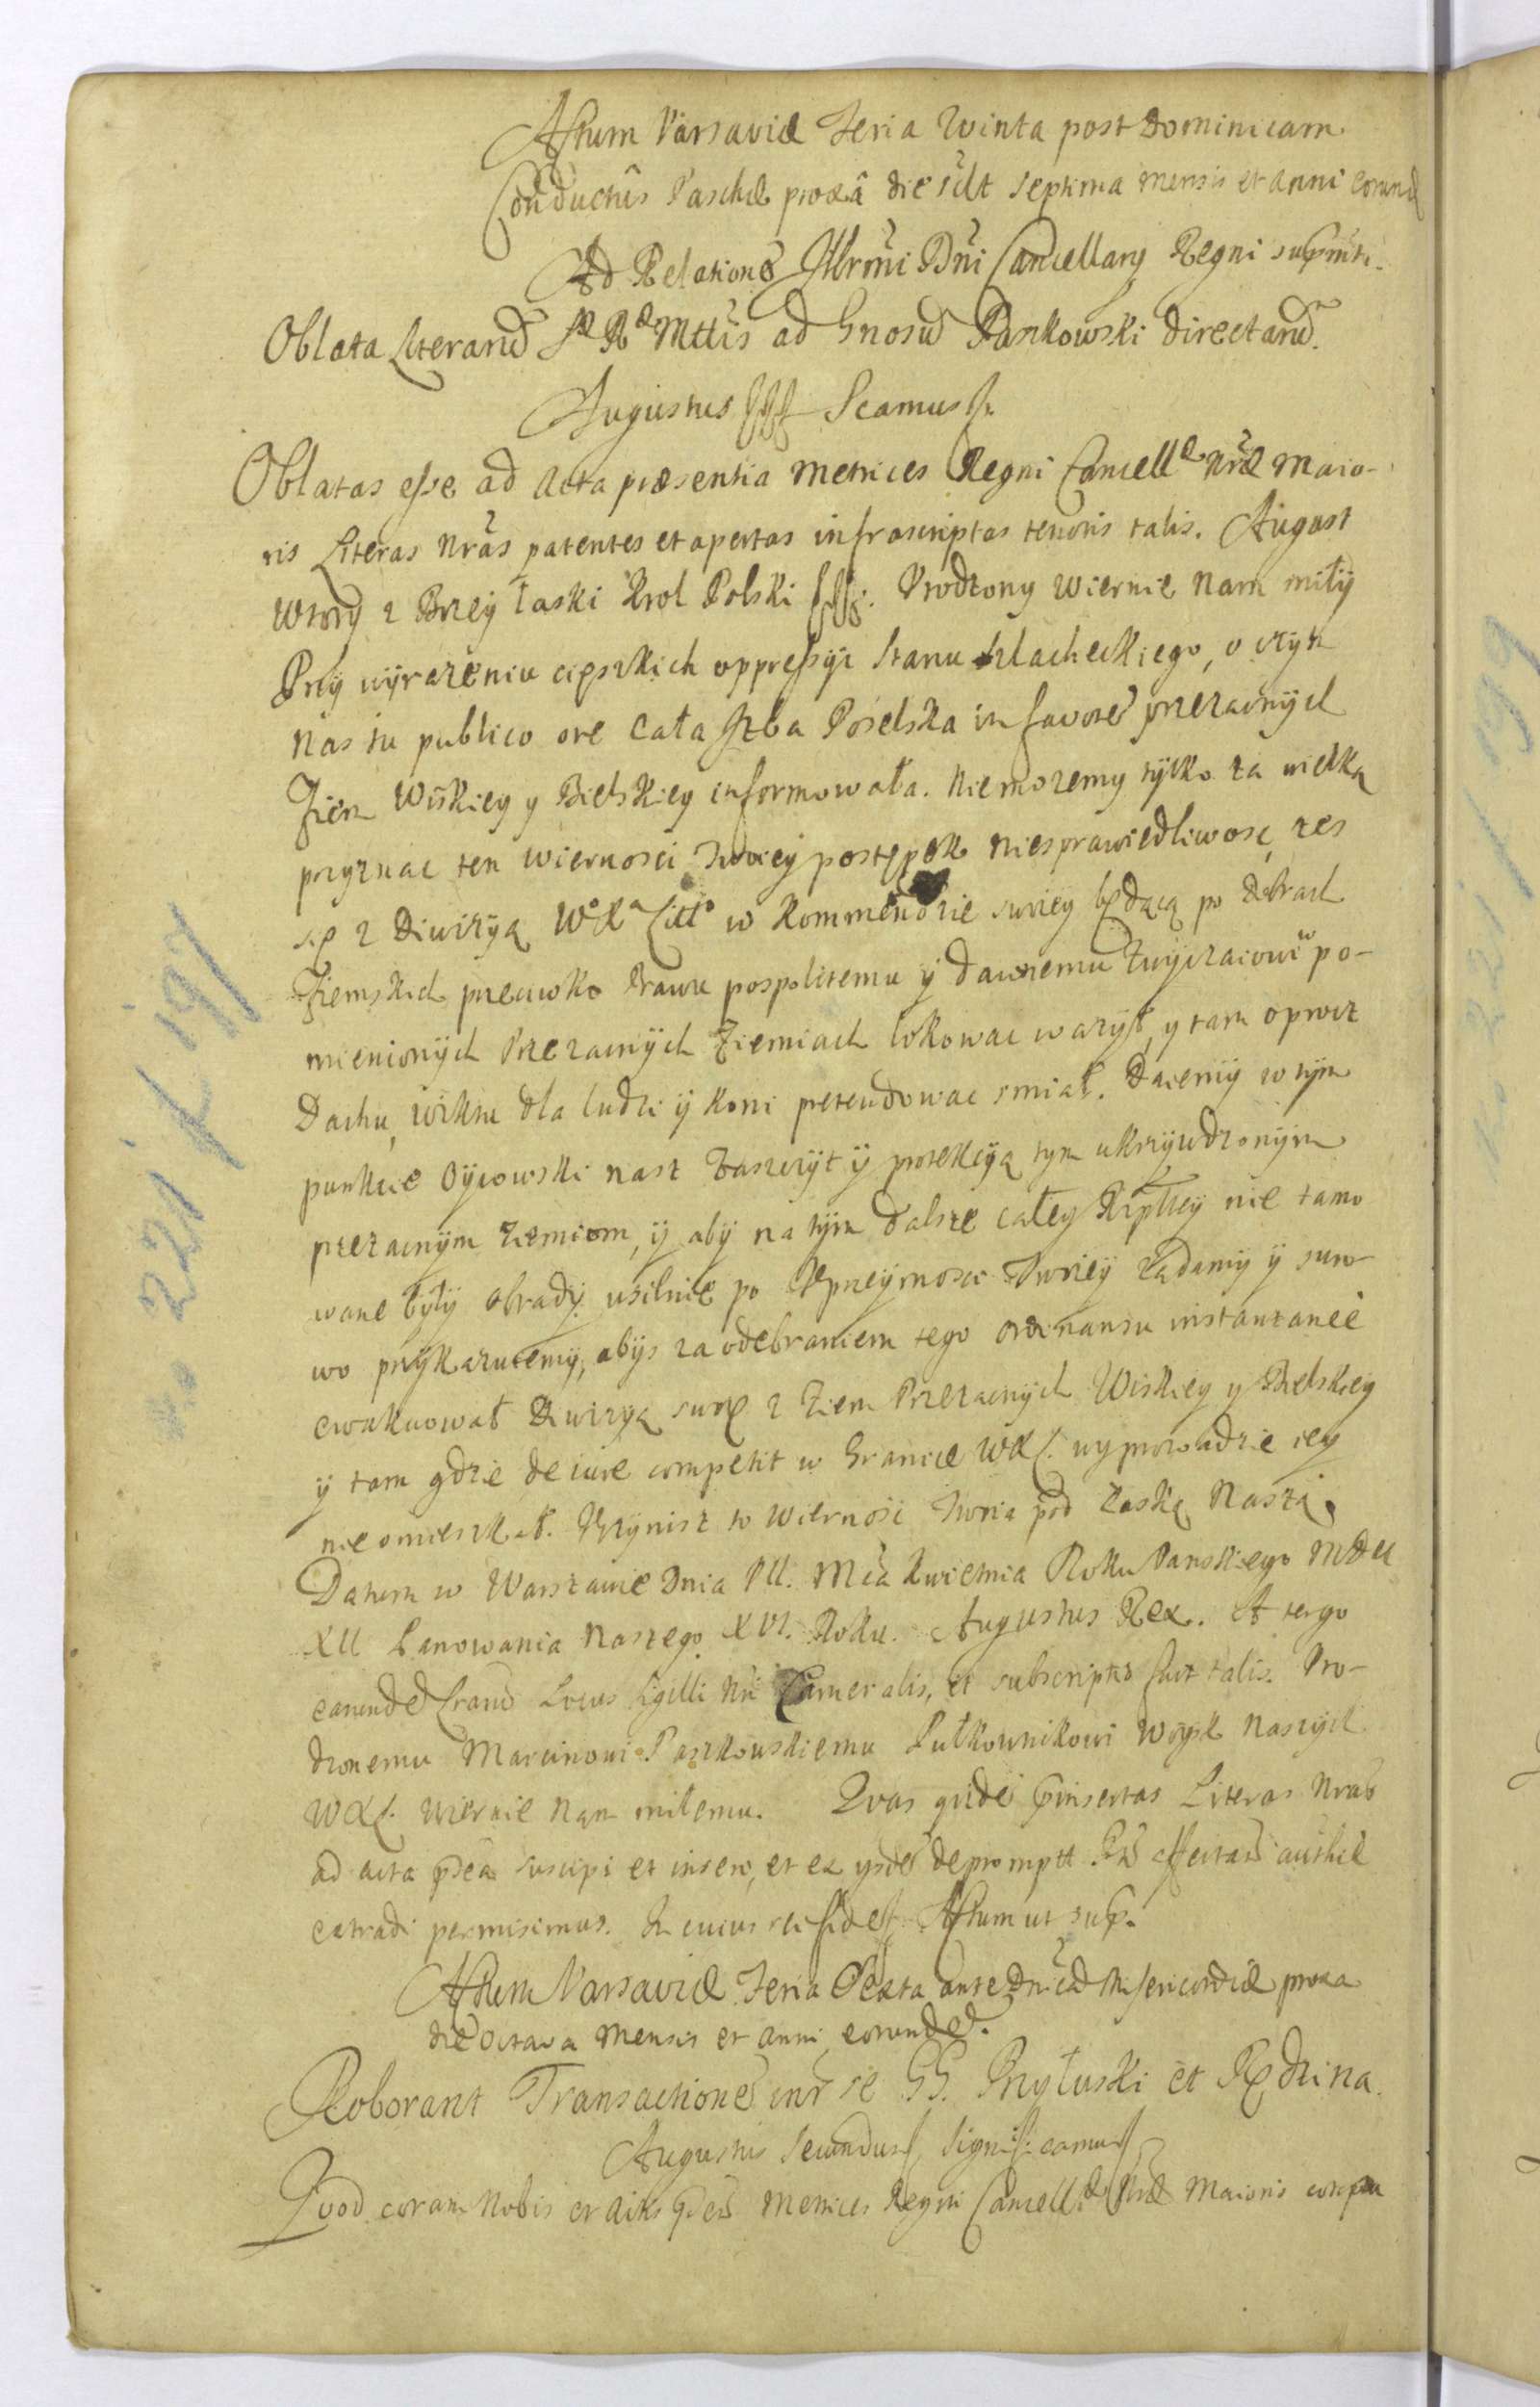 Actum Varsaviæ Feria Quinta post Dominicam
Conductûs Paschæ proxâ die scilt septima mensis et anni eorund
Ad Relatione Illrmi Dni Cancellary Regni supmti.
Oblata Literaru S R Mttis ad Gnosu Paszkowski directaru.
Augustus Scamus
Oblatas esse ad Acta præsentia Metrices Regni Cancell Nræ Maio-
ris Literas Nras patentes et apertas infrascriptas tenoris talis. August
Wtory z Bzey Łaski Krol Polski Urodzony Wiernie Nam miły
Przy wyrazeniu cięszkich oppressyi Stanu Szlacheckiego, o czym
Nas tu publico ore Cała Izba Poselska in favore przezacnych
Ziem Wiskiey y Bielskiey informowała. Niemozemy tylko za wielką
przyznac ten Wiernosci Twoiey postępek niesprawiedliwosc, zes
się z Diwizyą W X Litt w Kommendzie swoiey będącą po dobrach
Ziemskich przeciwko Prawu pospolitemu y dawnemu Zwyczaiowi w po-
mienionych Przezacnych Ziemiach lokowac wazył, y tam oprocz
Dachu, wiktu dla ludzi y koni pretendowac smiał. Daiemy w tym
punkcie Oycowski nasz Zaszczyt y protekcyą tym ukrzywdzonym
przezacnym Ziemiom, y aby na tym dalsze całey Rzpltey nie tamo
wane były obrady, usilnie po Uprzeymosci Twoiey ządamy y suro
wo przykazuiemy, abys za odebraniem tego ordinansu instantanee
ewakuował Diwizyą swoię z Ziem Przezacnych Wiskiey y Bielskiey
y tam gdzie de iure competit w Granice WXL. wyprowadzic iey
nie omieszkał. Uczynisz to Wiernosc Twoia pod Łaską Naszą.
Datum w Warszawie Dnia VII. Mca Kwietnia Roku Panskiego MDCC
XII Panowania Naszego XVI. Roku. Augustus Rex. A tergo
earunde Lraru Locus Sigilli Nri Cameralis, et subscriptio fuit talis. Uro-
dzonemu Marcinowi Paszkowskiemu Pułkownikowi Woysk Naszych
WXL. Wiernie Nam miłemu. Quas quide pinsertas Literas Nras
ad acta psea suscipi et inseri, et ex ysde depromptt authce
extradi permisimus. In cuius rei fide Actum ut sup.
Actum Varsaviæ Feria Sexta ante Dnica Misericordiæ proxa
die Octava Mensis et Anni eorunde.
Roborant Transactione intr se GG. Przyłuski et Rędzina.
Augustus Secundus Significamus
Quod coram Nobis et Actis Metrices Regni Cancell Nræ Maioris compa
No 221 k 197